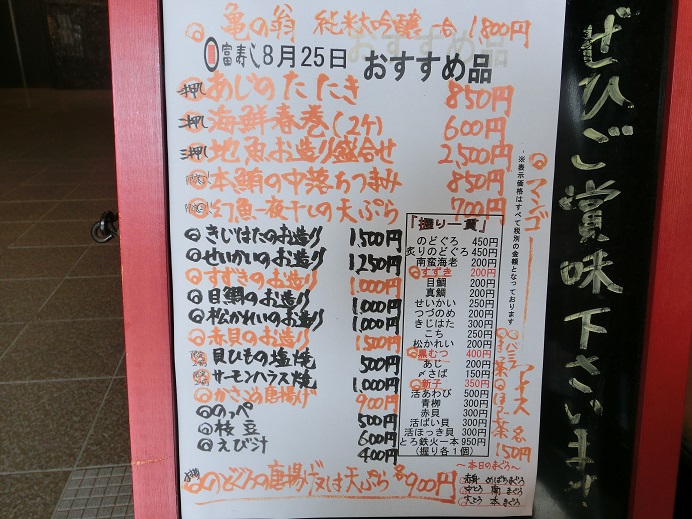 亀の翁 純米大吟醸 一合 1800円
富寿し 8月25日 おすすめ品
一押し あじのたたき 850円
二押し 海鮮春巻(2ケ) 600円
三押し 地魚お造り盛合せ 2,500円
限定 本鮪の中落ちつまみ 850円
限定 幻魚一夜干しの天ぷら 700円
きじはたのお造り 1,500円
せいかいのお造り 1,250円
すずきのお造り 1,000円
目鯛のお造り 1,000円
松かれいのお造り 1,000円
赤貝のお造り 1,500円
貝ひもの塩焼 500円
サーモンハラス焼 1,000円
かさごの唐揚げ 900円
のっぺ 500円
枝豆 600円
えび汁 400円
のどぐろの唐揚げ又は天ぷら 各900円
「握り一貫」
のどぐろ 450円
炙りのどぐろ 450円
南蛮海老 200円
すずき 200円
目鯛 200円
真鯛 200円
せいかい 250円
つづのめ 200円
きじはた 300円
こち 250円
松かれい 200円
黒むつ 400円
あじ 200円
〆さば 150円
新子 350円
活あわび 500円
青柳 300円
赤貝 300円
活ばい貝 300円
活ほっき貝 300円
とろ鉄火一本 950円
(握り各1個)
~本日のまぐろ~
赤身 めばちまぐろ
中とろ 南まぐろ
大とろ 本まぐろ
※表示価格はすべて税別の金額となっております
マンゴー
ほうじ茶
アイス
各150円
ぜひご賞味下さいます!